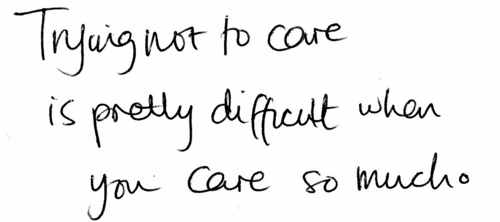 Trying not to care
is pretty difficult when
you care so much.